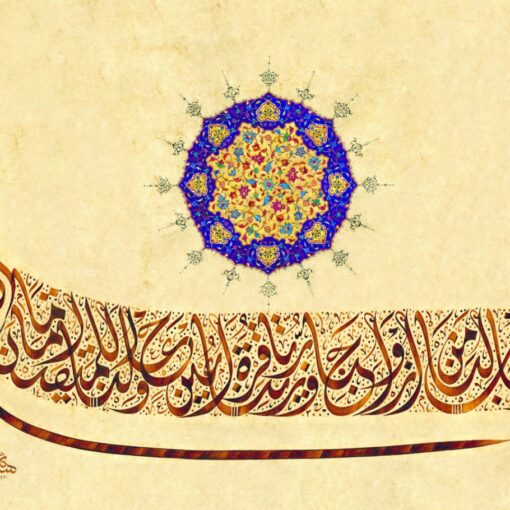 لنا من أزواجنا وذرياتنا قرة أعين واجعلنا للمتقين إماما